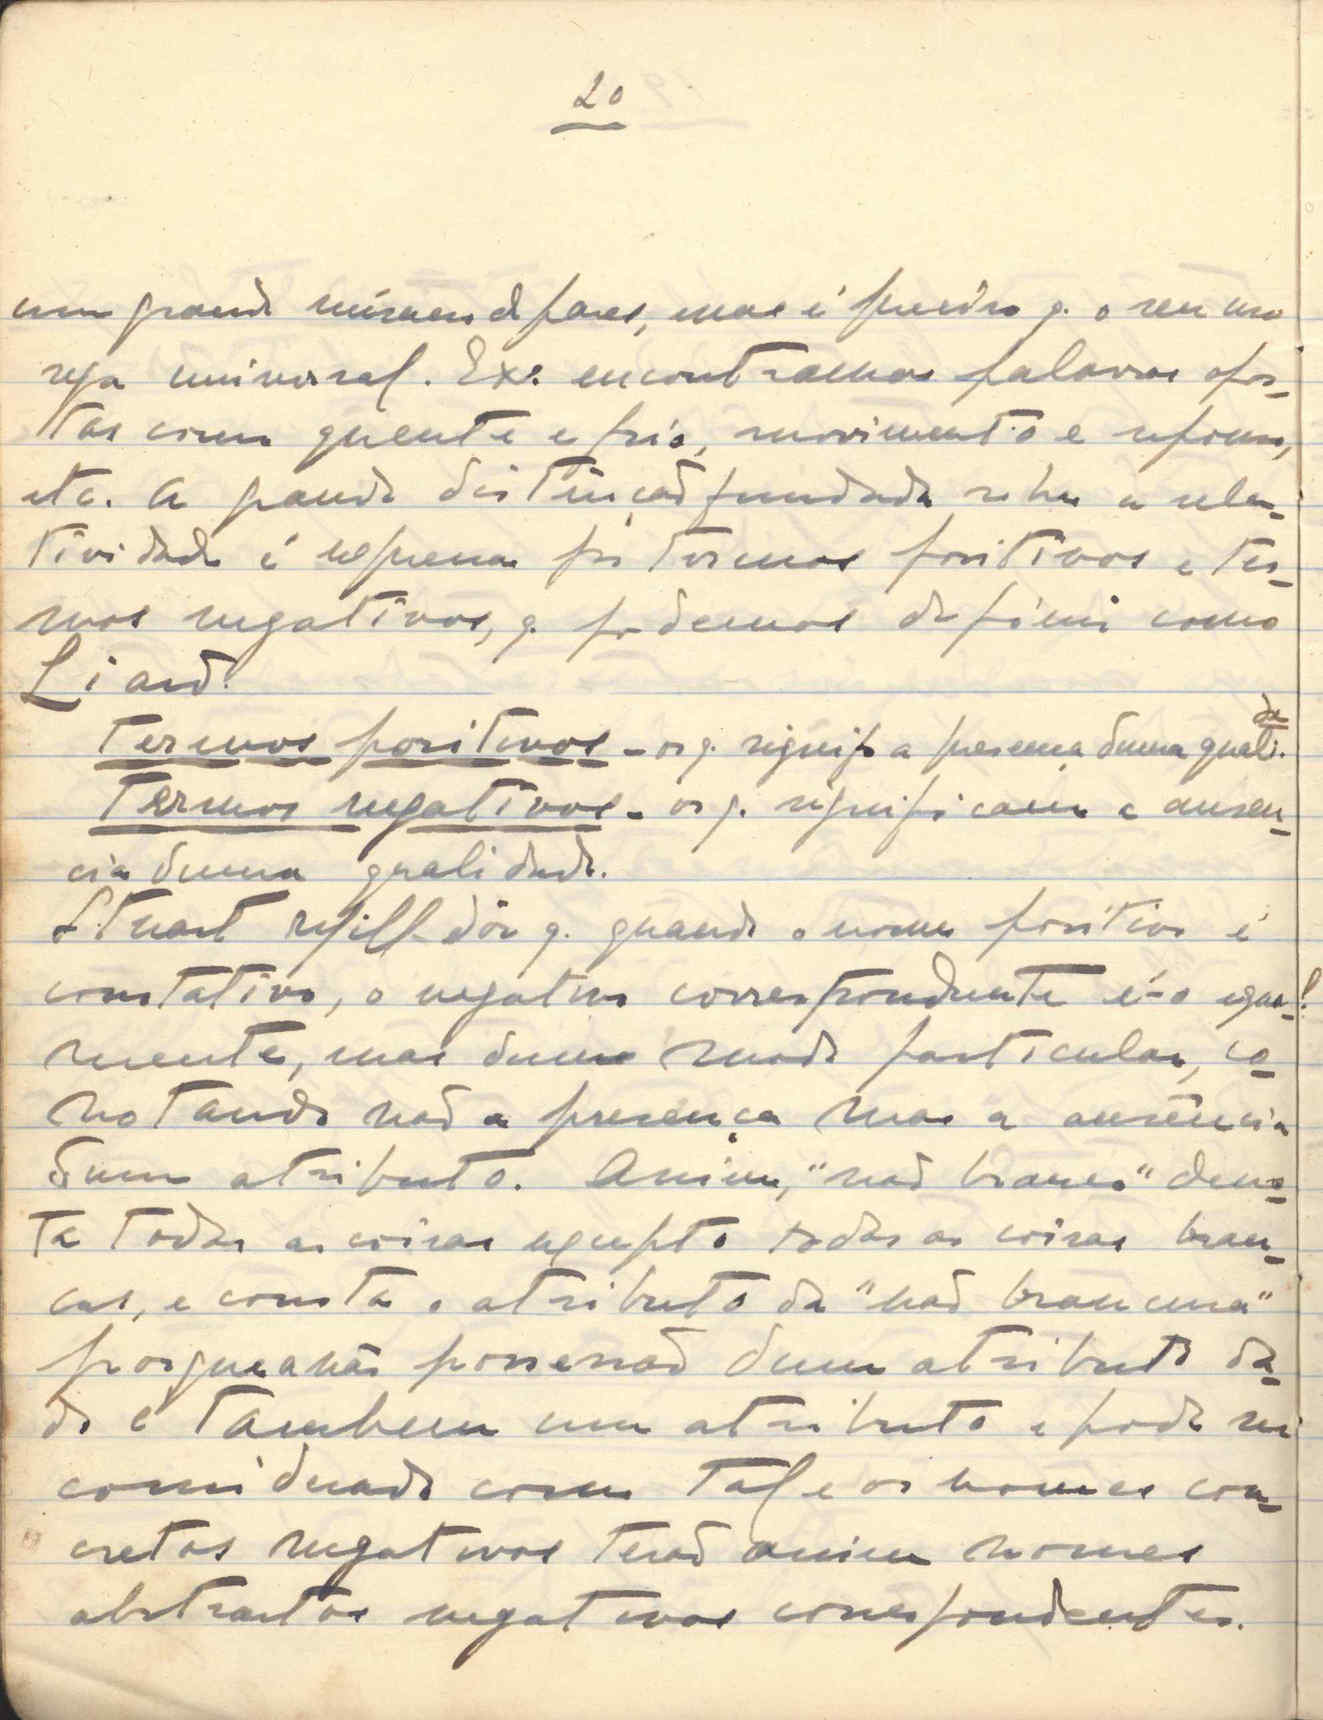 20
um grande número de pares, mas é preciso q. o seu uso
seja universal. Ex: encontramos palavras opos-
tas como quente e frio, movimento e repouso,
etc. A grande distinção fundada sobre a rela-
tividade é expressa por termos positivos e ter-
mos negativos, q. podemos definir como
Liard:
Termos positivos - os q. signif. a presença duma qualidade.
Termos negativos - os q. significam a ausen-
cia duma qualidade.
Stuart Mill diz q. quando o nome positivo é
conotativo, o negativo correspondente é-o igual-
mente, mas dum modo particular, co-
notando não a presença mas a ausência
dum atributo. Assim, "não branco" deno-
ta todas as coisas excepto todas as coisas bran-
cas, e conota o atributo da "não brancura"
porque a não possessão dum atributo da-
do é tambem um atributo e pode ser
considerado como tal e os nomes con-
cretos negativos terão assim nomes
abstractos negativos correspondentes.